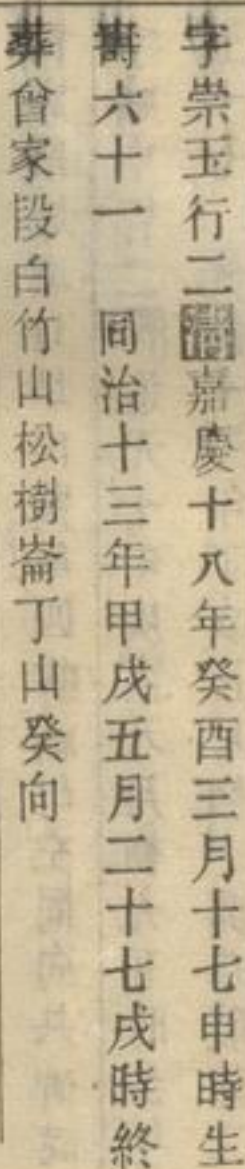 字崇玉行二清嘉慶十八年癸酉三月十七申時生
壽六十一 同治十三年甲戌五月二十七戌時終
葬曾家段白竹山松樹崙丁山癸向